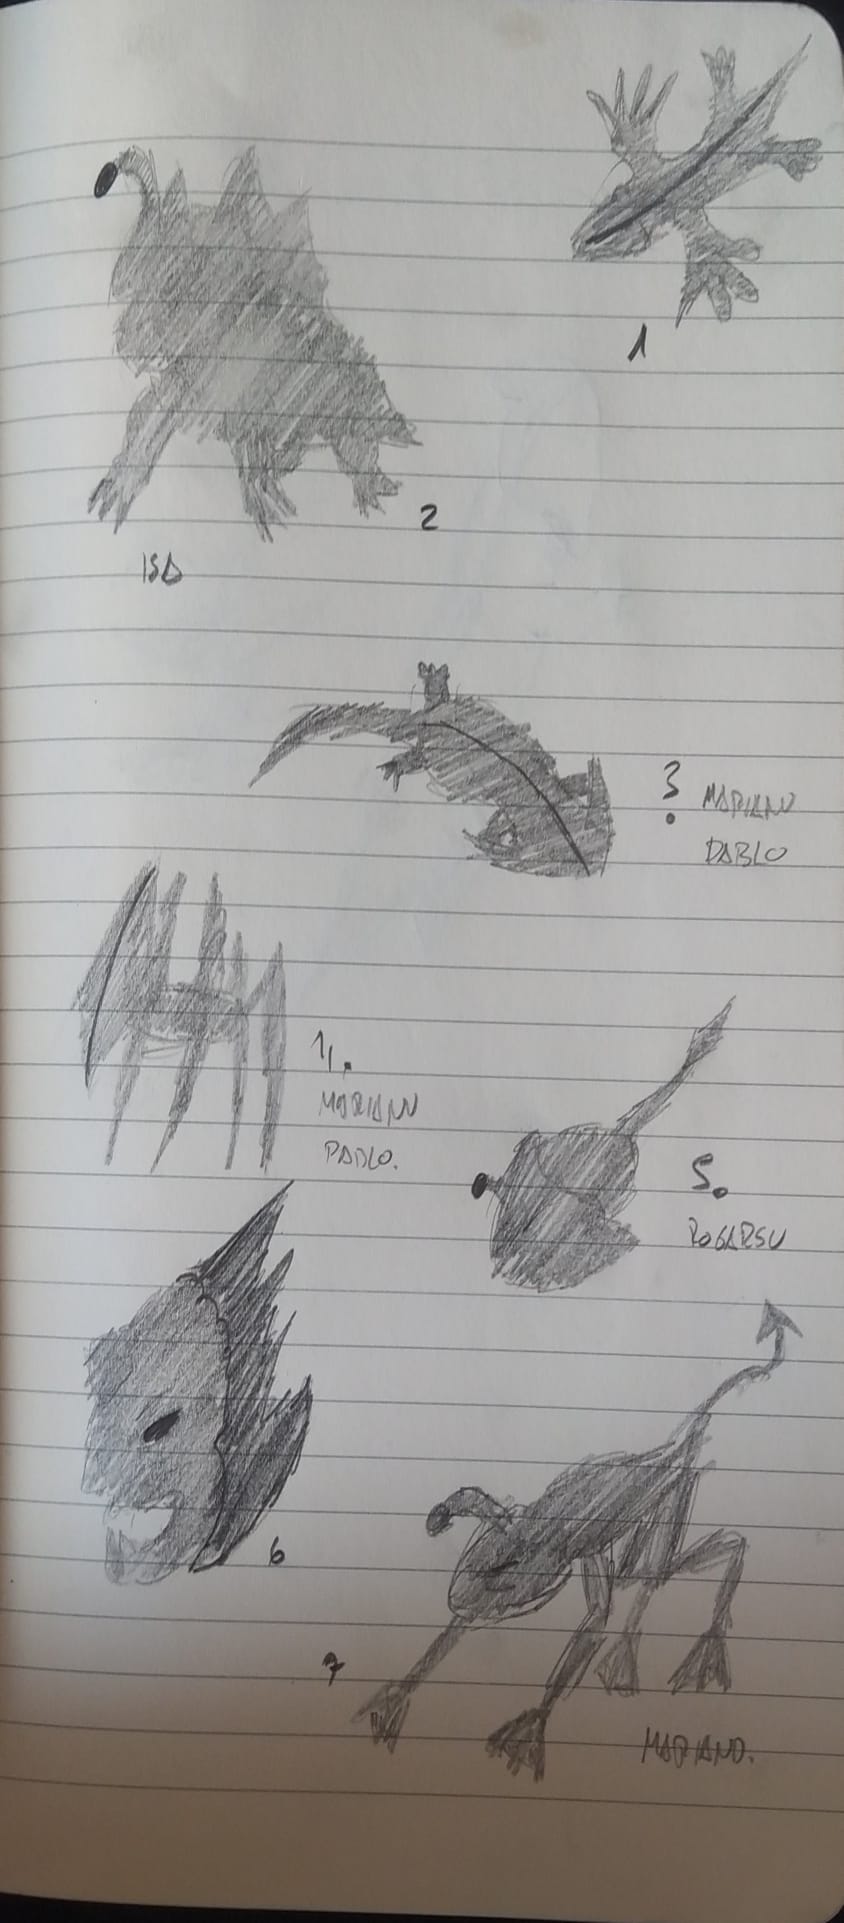 1
2
ISA
3.
MARIANO
PABLO
4.
MARIANO
PABLO.
5.
ROGARSU
6
7
MARIANO.